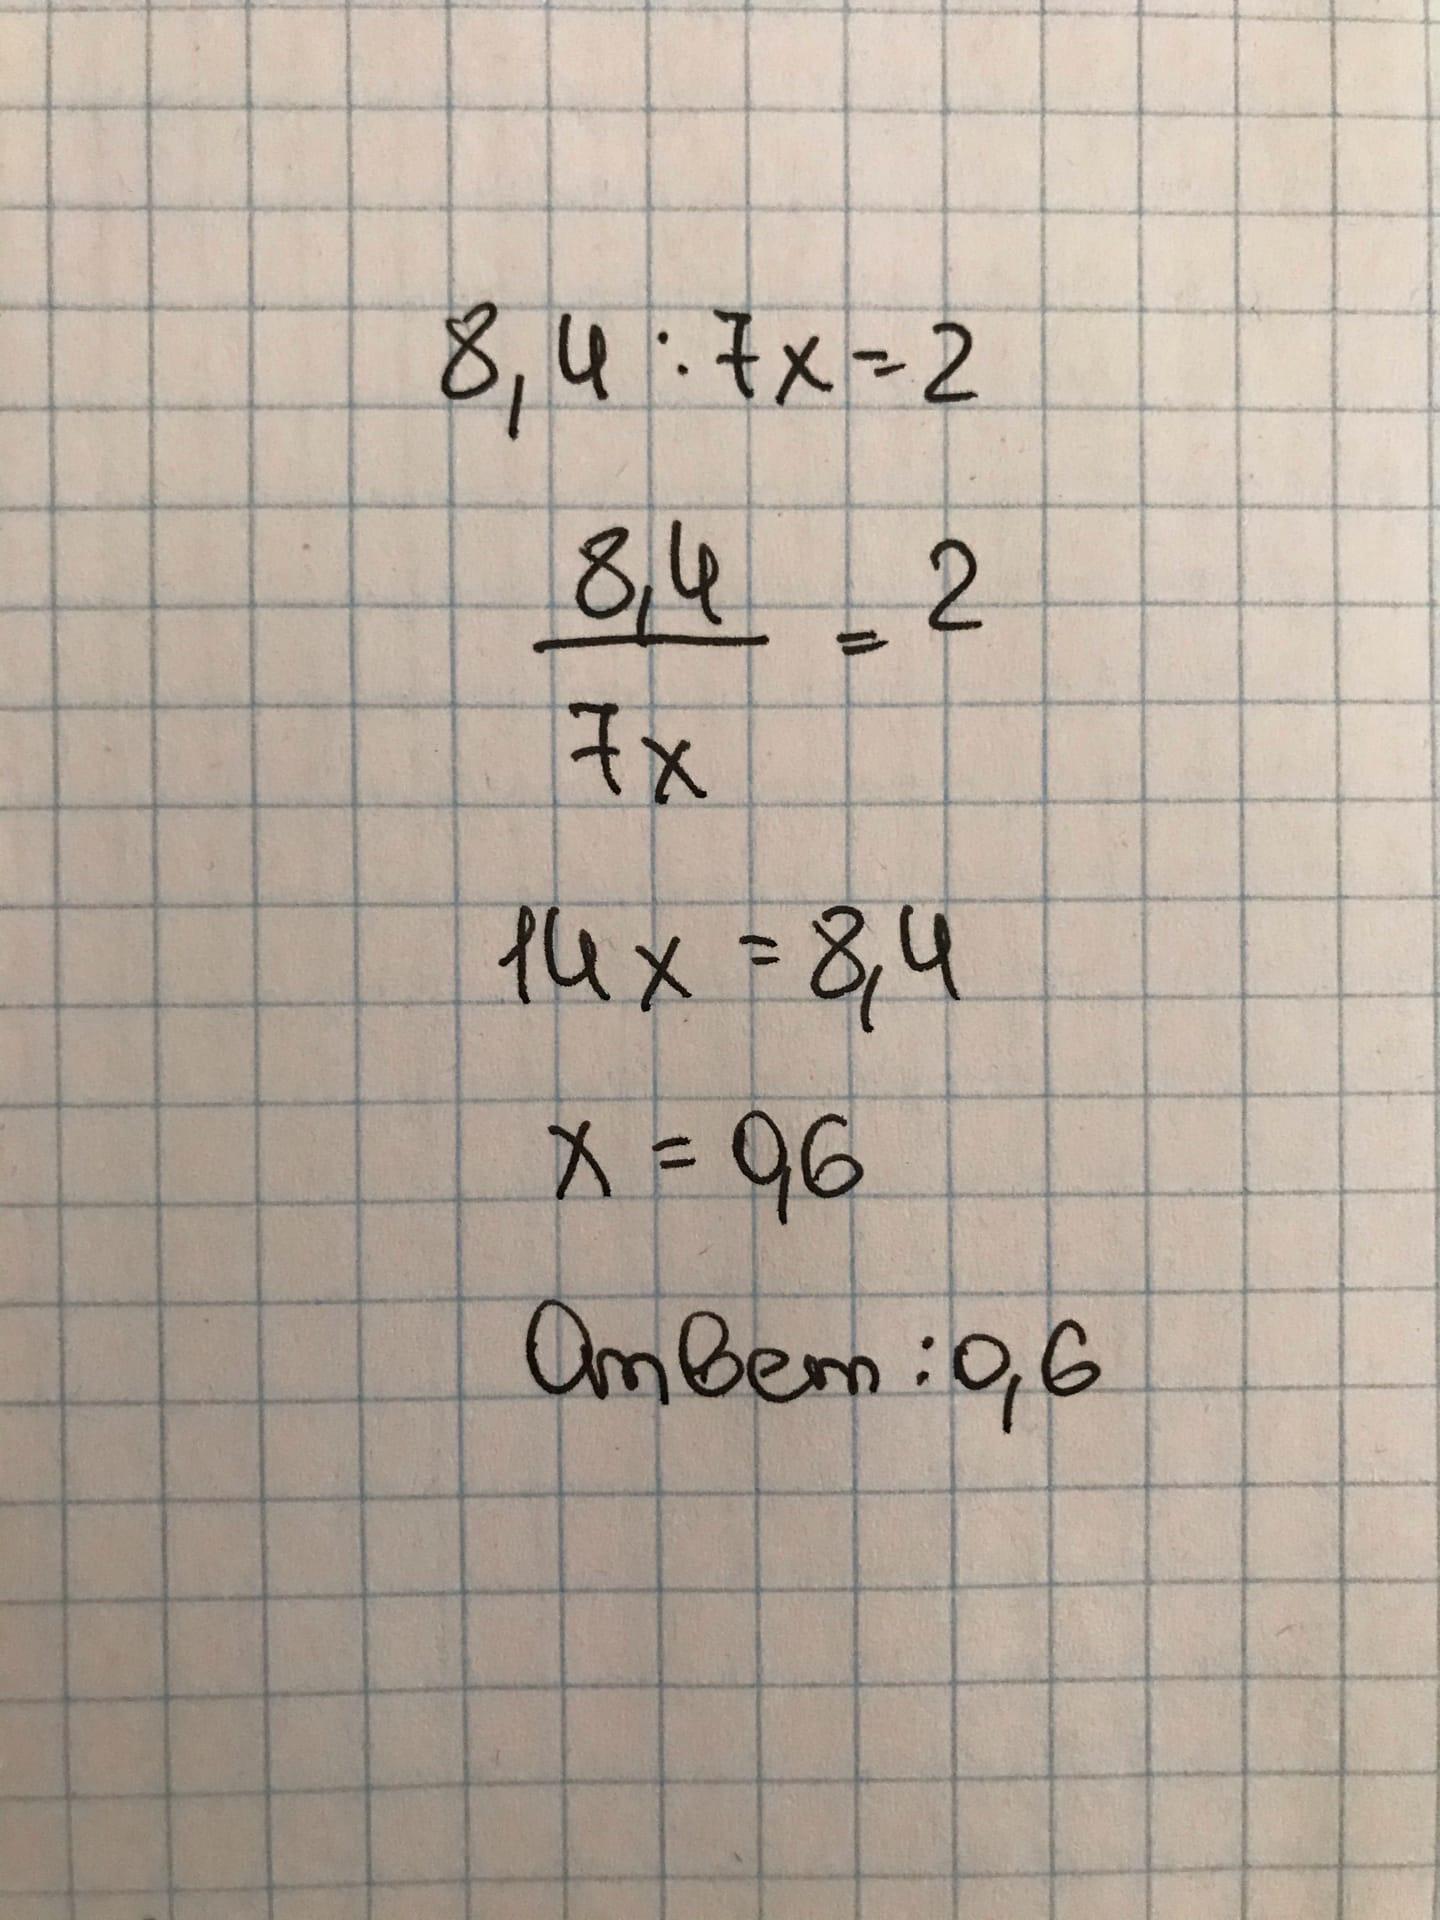 8,4 : 7x = 2
8,4
= 2
7x
14x = 8,4
x = 0,6
Ответ : 0,6